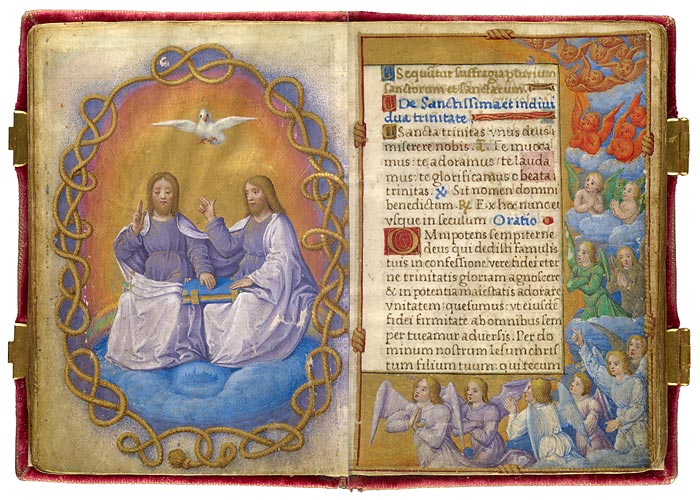 Sequuntur suffragia plurium
sanctorum et sanctarum
De Sanctissima et indiui
dua trinitate
O Sancta trinitas vnus deus
miserere nobis. a. Te inuoca
mus: te adoramus: te lauda
mus: te glorificamus o beata
trinitas. v. Sit nomen domini
benedictum. R. Ex hoc nunc et
vsque in seculum Oratio
OMnipotens sempiterne
deus qui dedisti famulis
tuis in confessione vere fidei eter
ne trinitatis gloriam agnoscere
& in potentia maiestatis adorare
vnitatem: quesumus: vt eiusdē
fidei firmitate ab omnibus sem
per tueamur aduersis. Per do
minum nostrum Iesum chris
tum filium tuum: qui tecum